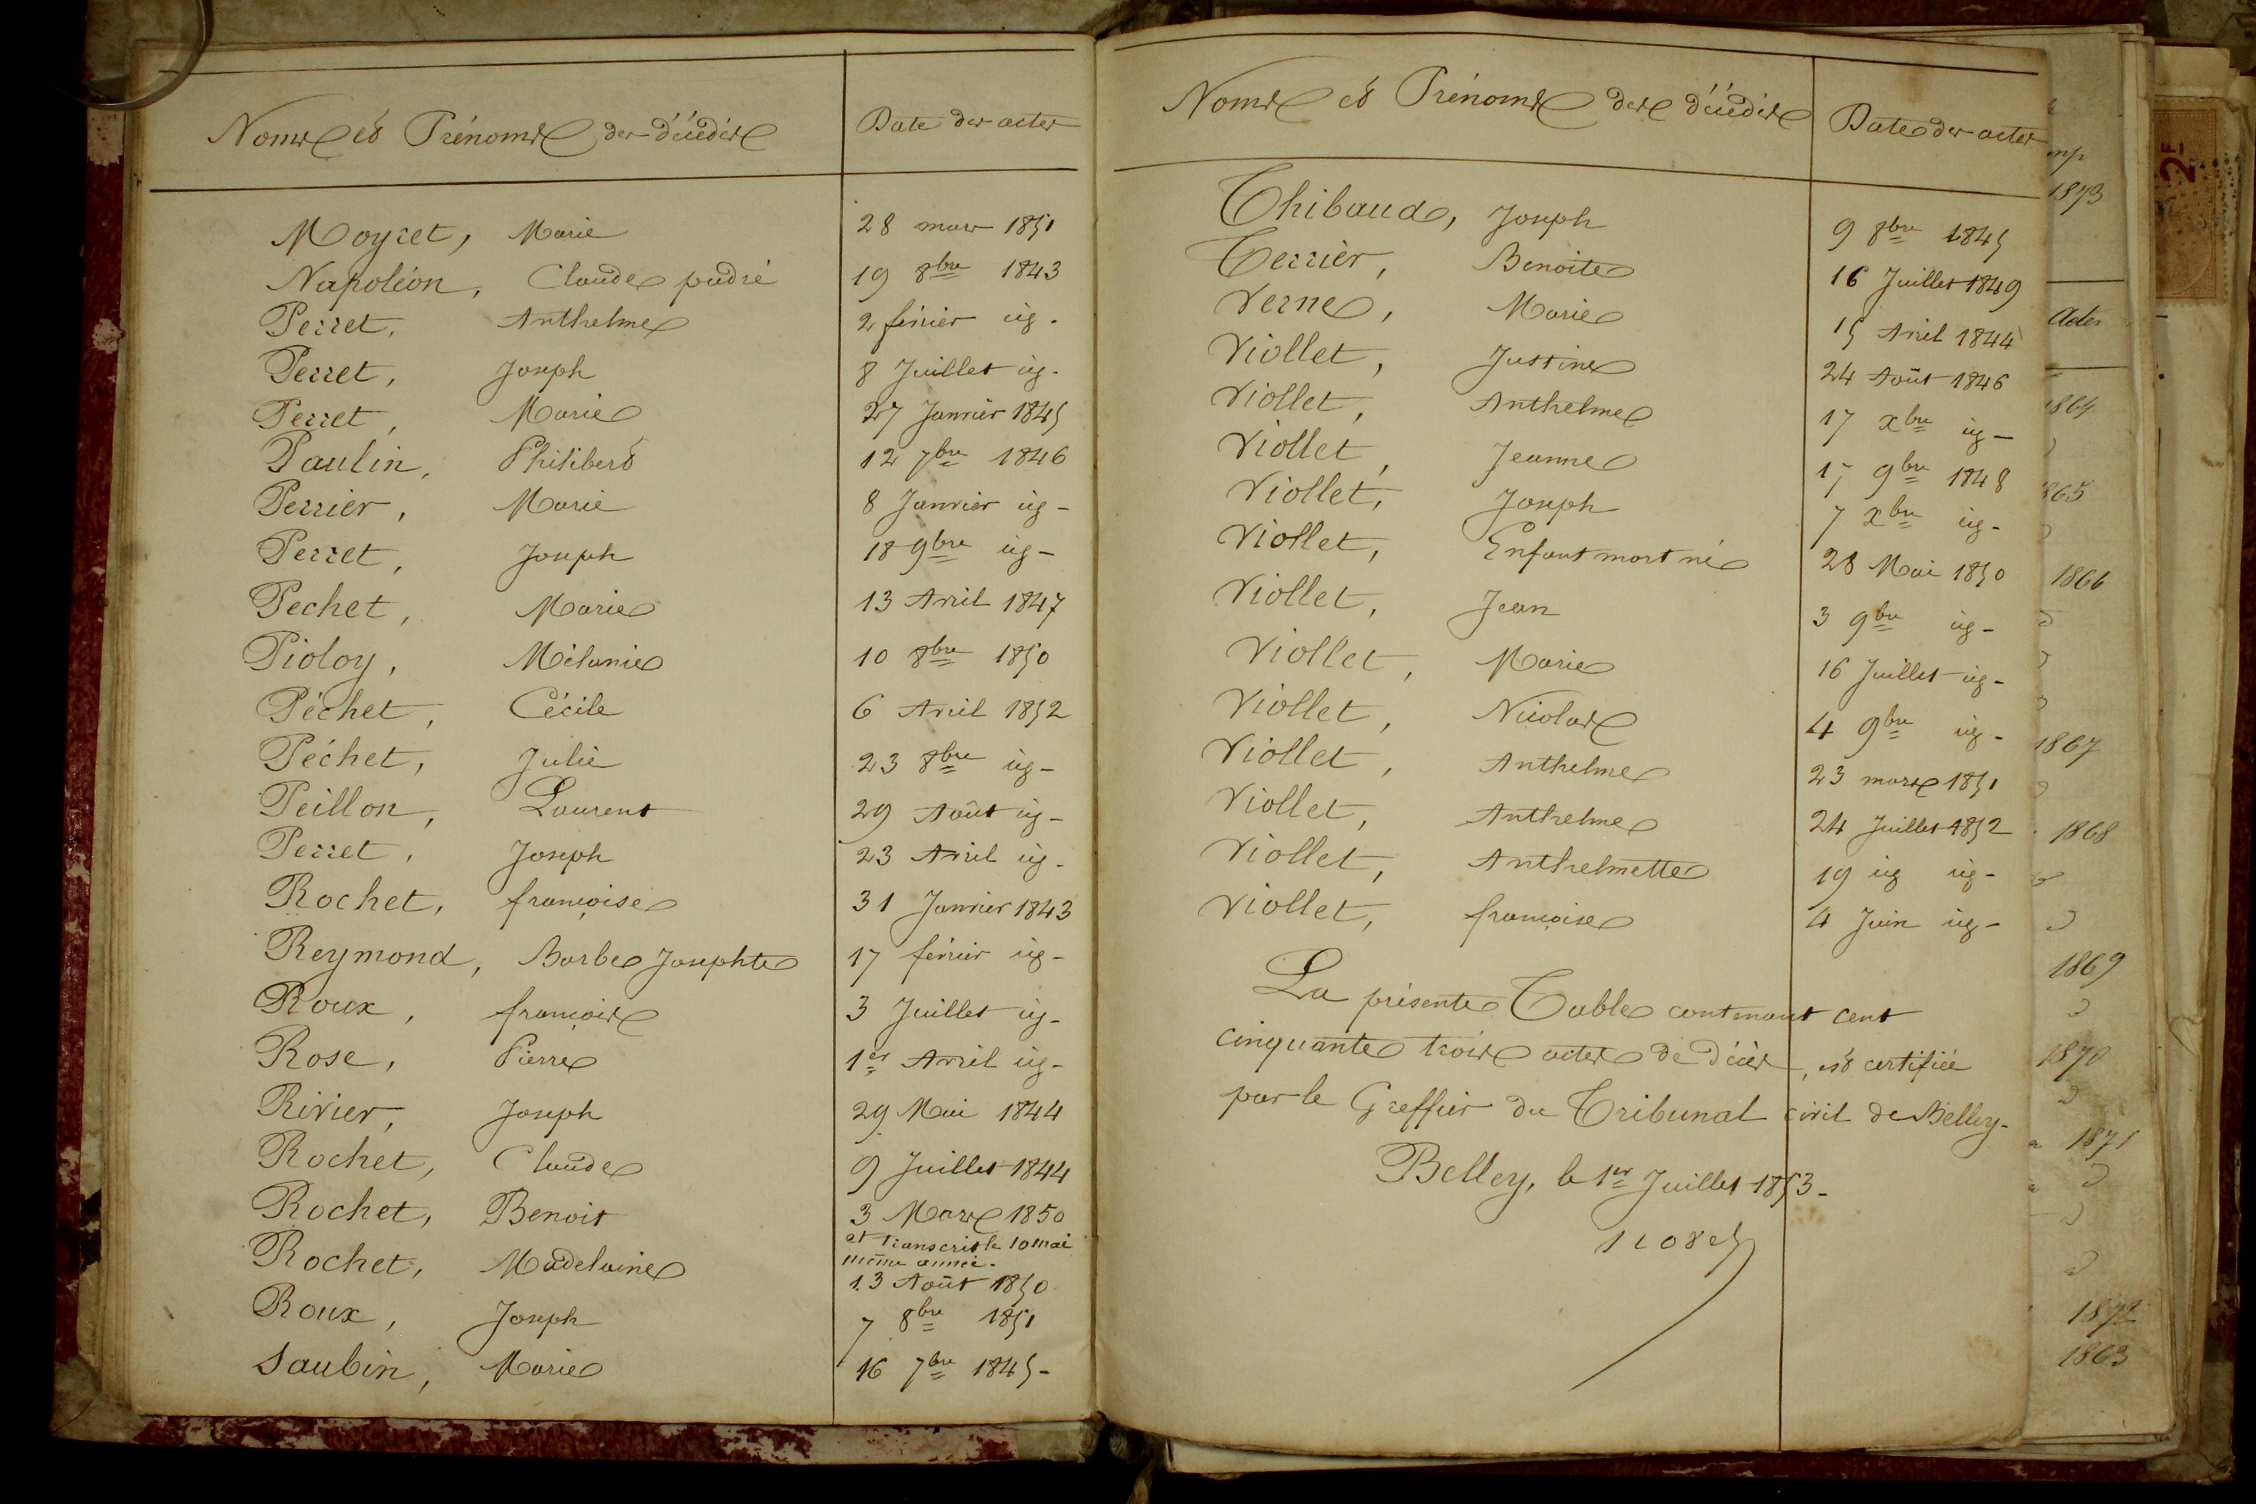 Noms et Prénoms des décédés Date des actes
Moyret, Marie 28 mars 1851
Napoléon, Claude 19 8bre 1843
Perret, Anthelme 2 février ig-
Perret, Joseph 8 Juillet ig-
Perret, Marie 27 Janvier 1845
Paulin, Philibert 12 7bre 1846
Perrier, Marie 8 Janvier ig-
Perret, Joseph 18 9bre ig-
Pechet, Marie 13 Avril 1847
Pioloy, Mélanie 10 8bre 1850
Péchet, Cécile 6 Avril 1852
Péchet, Julie 23 8bre ig-
Peillon, Laurent 29 Août ig-
Perret, Joseph 23 Avril ig-
Rochet, françoise 31 Janvier 1843
Reymond, Barbe Josephte 17 février ig-
Roux, françois 3 Juillet ig-
Rose, Pierre 1er Avril ig-
Rivier, Joseph 29 Mai 1844
Rochet, Claude 9 Juillet 1844
Rochet, Benoit 3 Mars 1850
et transcrit le 10 mai
même année.
Rochet, Madelaine 13 Août 1850
Roux, Joseph 7 8bre 1851
Saubin, Marie 16 7bre 1845-
Noms et Prénoms des décédés Date des actes
Thibaud, Joseph 9 8bre 1845
Terrier, Benoite 16 Juillet 1849
Verne, Marie 15 Avril 1844
Viollet, Justine 24 Août 1846
Viollet, Anthelme 17 xbre ig-
Viollet, Jeanne 17 9bre 1848
Viollet, Joseph 7 xbre ig-
Viollet, Enfant mort né 28 Mai 1850
Viollet, Jean 3 9bre ig-
Viollet, Marie 16 Juillet ig-
Viollet, Nicolas 4 9bre ig-
Viollet, Anthelme 23 mars 1851
Viollet, Anthelme 24 Juillet 1852
Viollet, Anthelmette 19 ig ig-
Viollet, françoise 4 Juin ig-
La présente Table contenant cent
cinquante trois actes de décès, est certifiée
par le Greffier du Tribunal civil de Belley-
Belley, le 1er Juillet 1853-
1873
Actes
1864
1865
1866
1867
1868
1869
1870
1871
1872
1863
2F